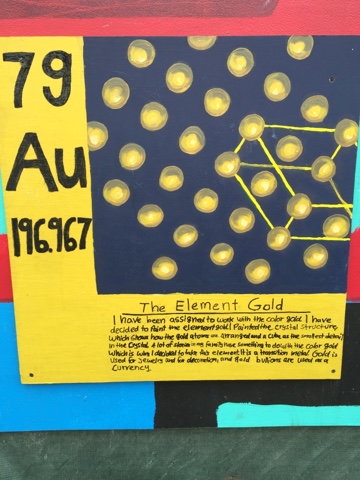 79
Au
196.967
The Element Gold
I have been assigned to work with the color gold. I have
decided to Paint the element gold. I Painted the crystal structure,
which shows how the gold atoms are arranged and a cube as the smallest detail
in the crystal. A lot of in my family have something to do with the color gold
which is why I decided to take this element. It is a transition metal. Gold is
used for jewelry and for decoration, and gold bullions are used as a
currency.